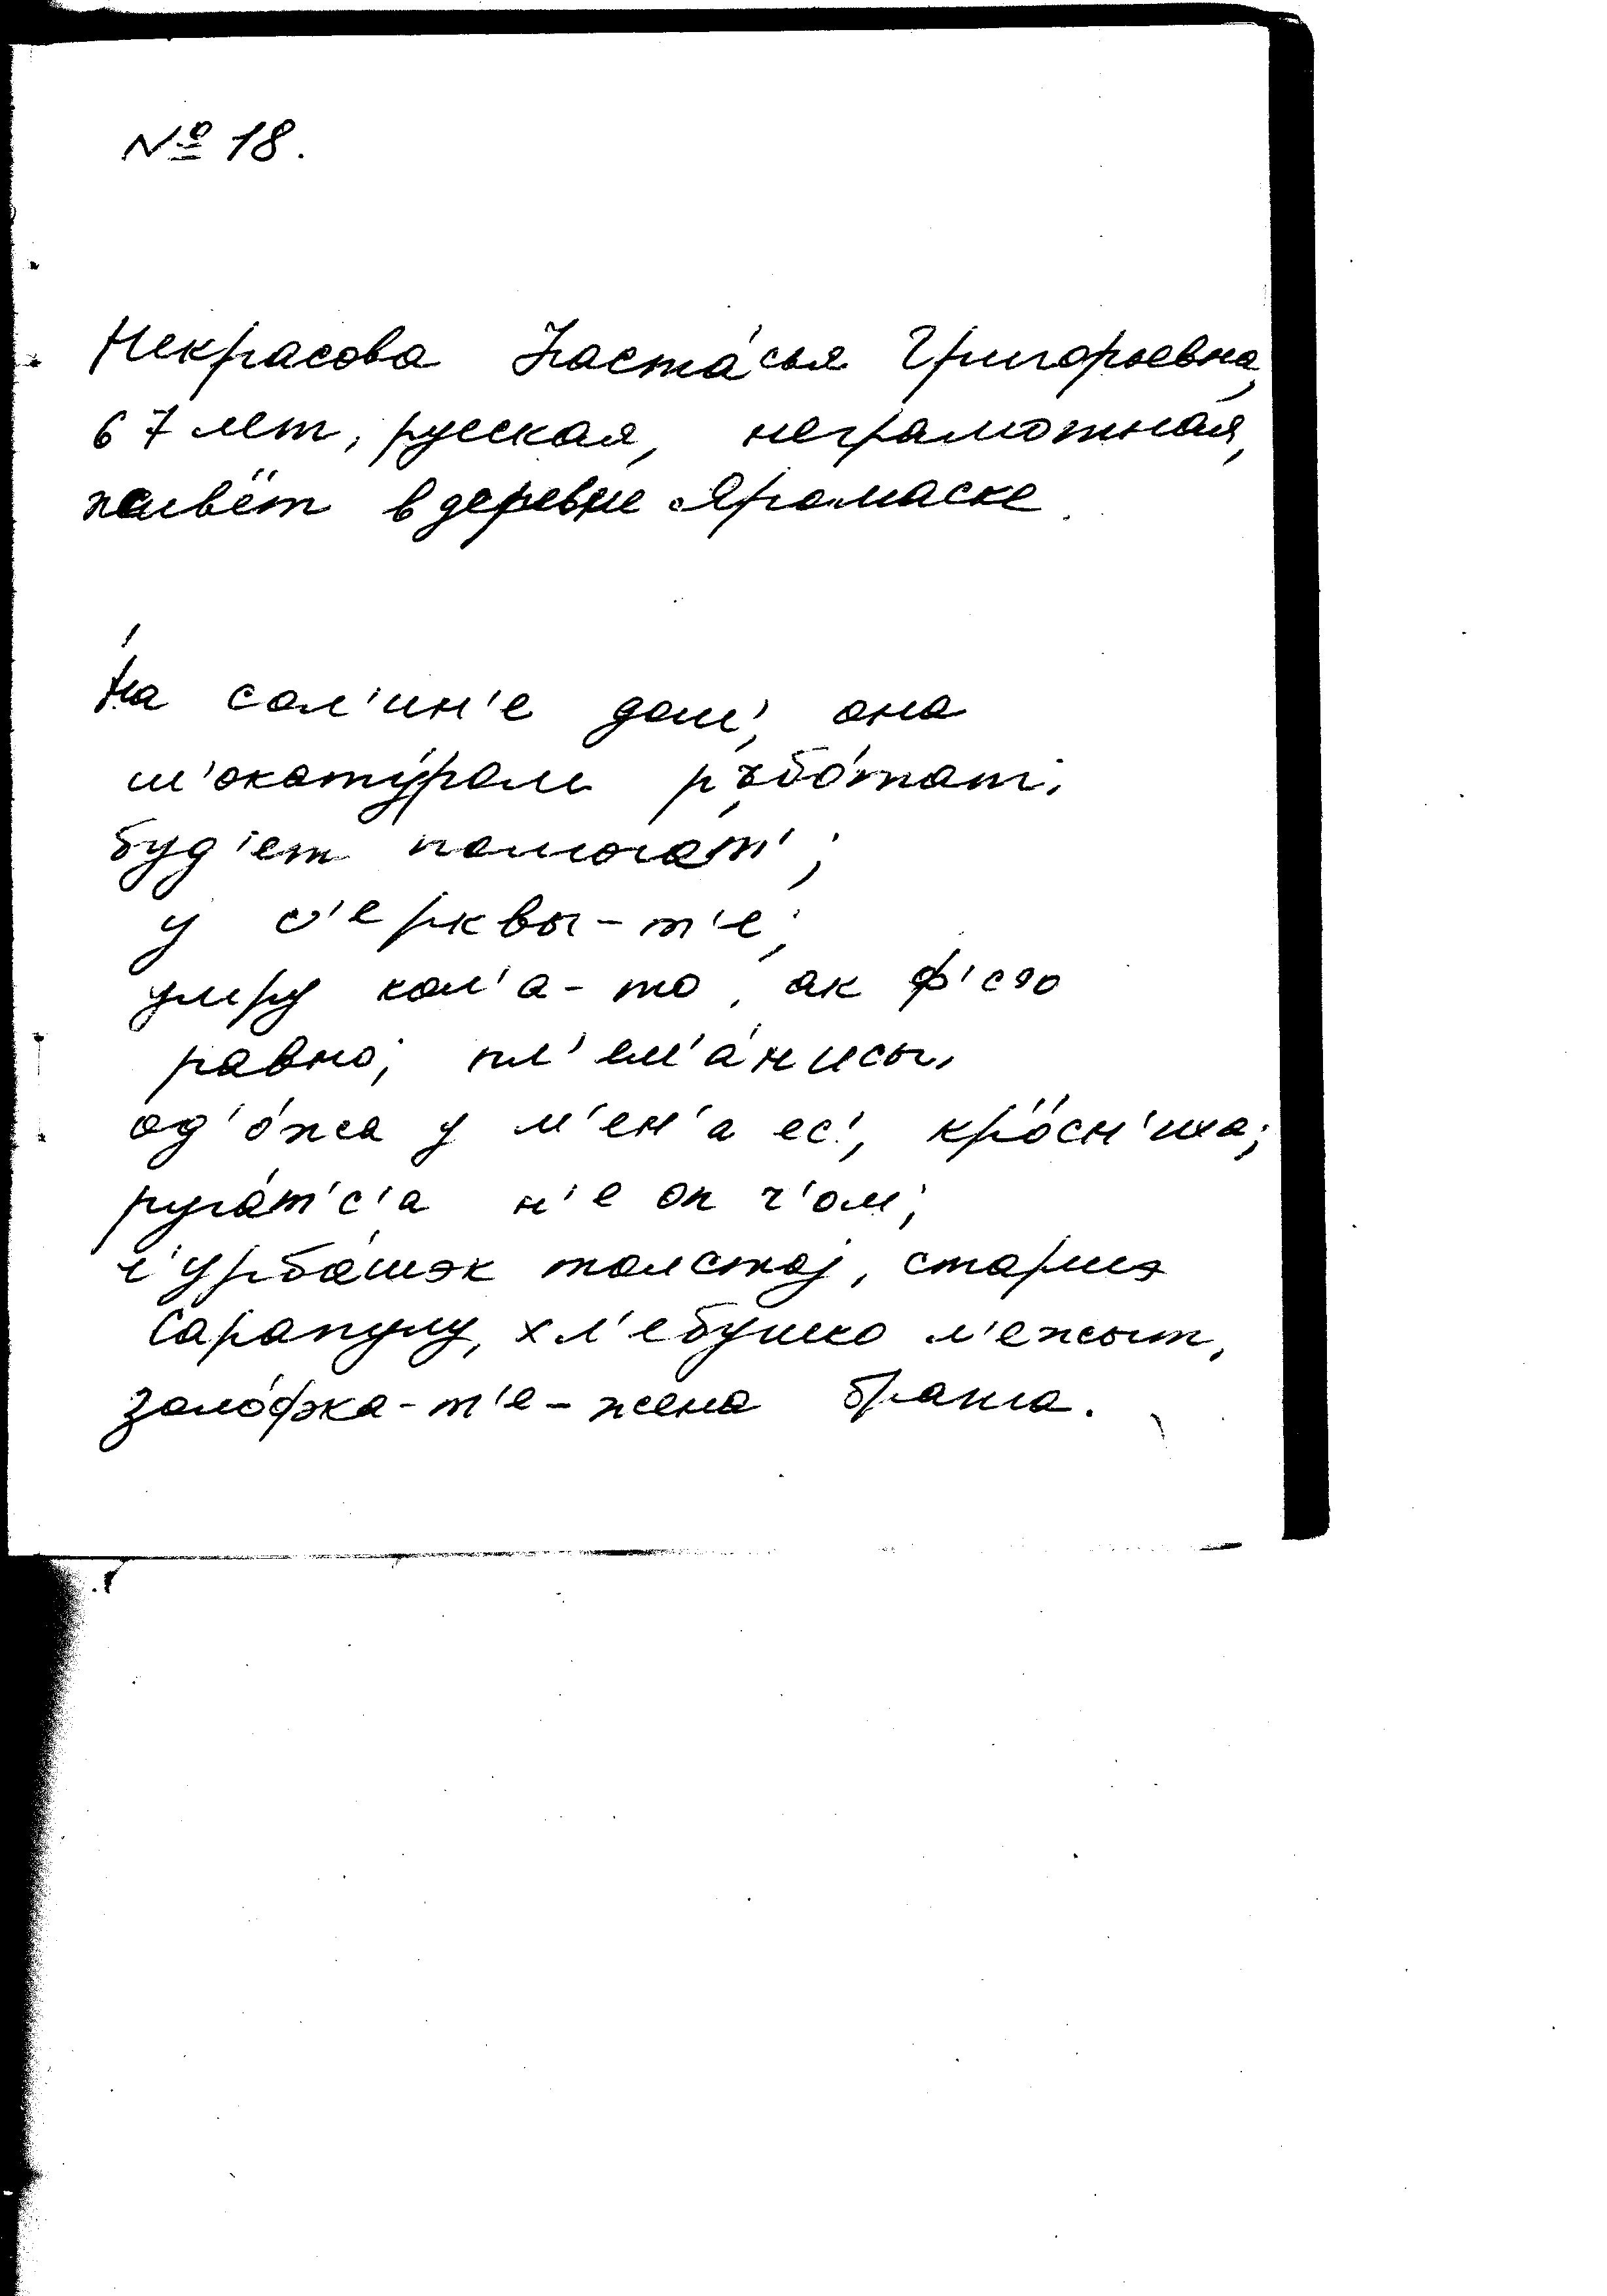 № 18.
Некрасова Наста́сья Григорьевна,
67 лет, русская, неграмотная,
живёт в деревне Яромаске.
На сол'ин'е дом', она
ш'окату́ром ръбо́тат;
буд'ет помога́т';
у с'ерквы-т'е;
умру кол'а-то, ак ф'с'о
равно; пл'ем'а́нисы,
од'о́жа у м'ен'а ес', кро́сн'иха;
руга́т'с'а н'е оп ч'ом;
ч'урба́шэк толстој, старшэ
Сарапулу, хл'ебушко л'ежыт,
золо́фка-т'е - жена брата.